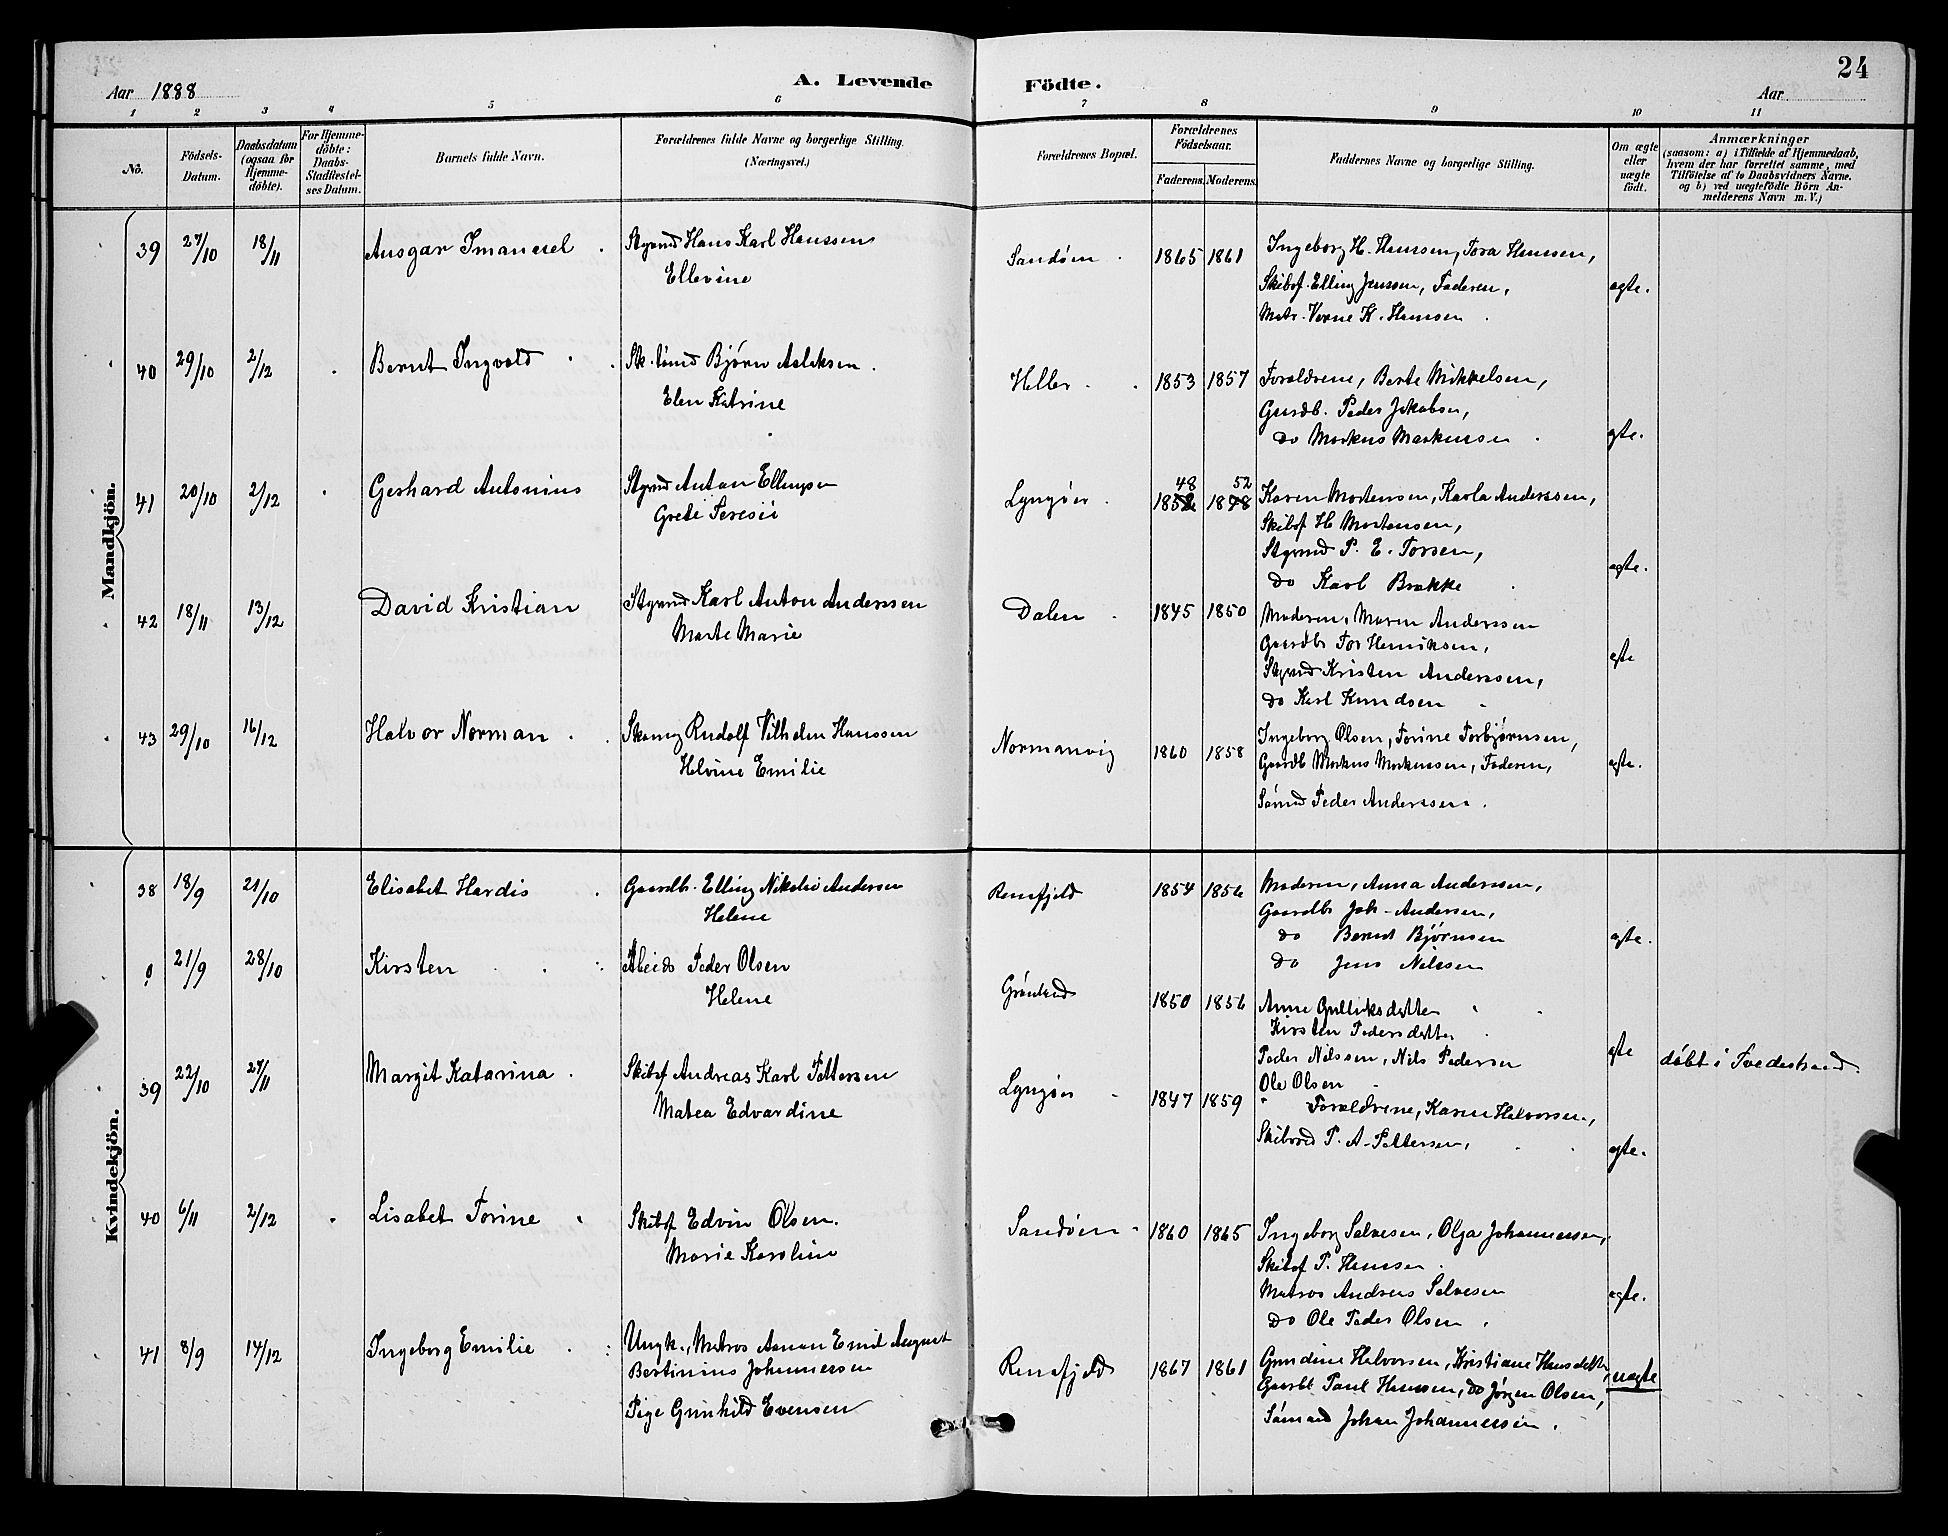 24
Aar 1888
A. Levende Födte.
Aar
1 2 3 4 5 6 7 8 9 10 11
No.
Födsels-Datum.
Daabsdatum (ogsaa for Hjemme-döbte).
For Hjemme-döbte: Daabs-Stadfæstel-ses Datum.
Barnets fulde Navn.
Forældrenes fulde Navne og borgerlige Stilling. (Næringsvei.)
Forældrenes Bopæl.
Forældrenes Födselsaar.
Faderens. Moderens.
Faddernes Navne og borgerlige Stilling.
Om ægte eller uægte födt.
Anmærkninger
(saasom: a) i Tilfælde af Hjemmedaab,
hvem der har forrettet samme, med
Tilföielse af to Daabsvidners Navne.
og b) ved uægtefödte Börn An-
melderens Navn m. V.)
Mandkjön.
39 27/10 18/11 Ansgar Imanuel Styrmd Hans Karl Hanssen
Ellevine
Sandøen 1865 1861 Ingeborg H. Hanssen, Tora Hanssen,
Skibsf. Elling Jenssen, Faderen,
Matr. Verne K. Hanssen
ægte.
40 29/10 2/12 Bernt Ingvold Sk.tømd Bjørn Aslaksen
Elen Katrine
Heller 1853 1857 Forældrene, Berte Mikkelsen,
Gaardb. Peder Jakobsen,
do Markus Markussen
ægte.
41 20/10 2/12 Gerhard Antonius Styrmd Anton Ellingsen
Grete Teresie
Lyngøer 48 52
1852 1848 Karen Mortensen, Karla Anderssen,
Skibsf H Mortensen,
Styrmd P. E. Torsen,
do Karl Brække
ægte.
42 18/11 13/12 David Kristian Styrmd Karl Anton Anderssen
Marte Marie
Dalen 1845 1850 Moderen, Maren Anderssen
Gaardbr Tor Henriksen,
Styrmd Kristen Anderssen,
do Karl Knudsen
ægte
43 29/10 16/12 Halvor Norman Skomag Rudolf Vilhelm Hanssen
Helvine Emilie
Normanvig 1860 1858 Ingeborg Olsen, Torine Torbjørnsen,
Gaardb Markus Markussen, Faderen,
Sømd Peder Anderssen.
ægte.
Kvindekjön.
38 18/9 21/10 Elisabet Hardis Gaardb. Elling Nikolai Andersen
Helene
Rensfjeld 1854 1856 Moderen, Anna Anderssen,
Gaardbr Joh. Andersen,
do Bernt Bjørnsen
do Jens Nilssen
ægte.
21/9 28/10 Kirsten Abeids Peder Olsen
Helene
Grønland 1850 1856 Anne Gulliksdatter
Kirsten Pedersdatter
Peder Nilssen, Nils Pedersen
Ole Olsen
ægte döbt i Tvedestrand.
39 22/10 27/11 Margit Katarina Skibsf Andreas Karl Pettersen
Matea Edvardine
Lyngøer 1847 1859 Forældrene, Karen Halvorsen,
Skibsred P. A. Pettersen,
ægte.
40 6/11 2/12 Lisabet Torine Skibsf Edvin Olsen.
Marie Karoline
Sandøen 1860 1865 Ingeborg Salvesen, Olga Johannessen,
Skibsf P. Hanssen
Matros Andreas Salvesen
do Ole Peder Olsen
ægte.
41 8/9 14/12 Ingeborg Emilie Ungk., Matros Aanon Emil August
Bertinius Johannessen
Pige Gunhild Evensen
Rensfjeld 1867 1861 Gundine Halvorsen, Kristiane Hansdatter
Gaardb Paul Hanssen, do Jörgen Olsen,
Sömand Johan Johannessen.
uægte